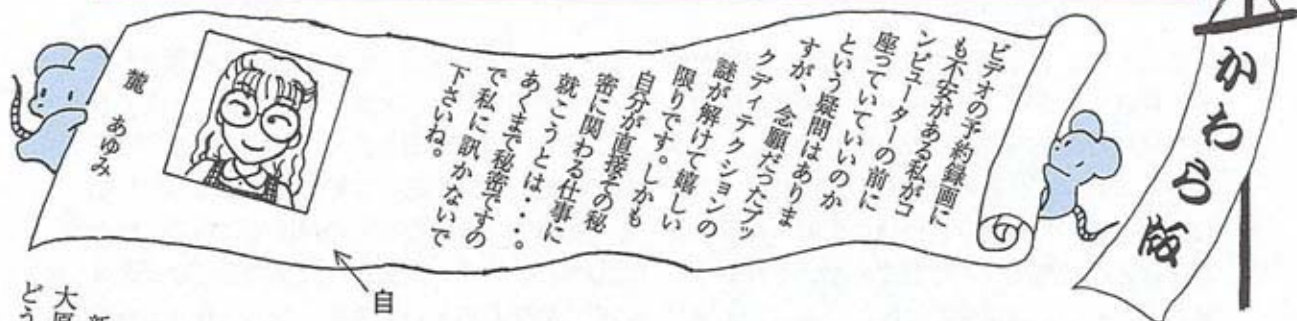 かわら版
ビデオの予約録画に
も不安がある私がコ
ンピューターの前に
座っていていいのか
という疑問はありま
すが、念願だったブッ
クディテクションの
謎が解けて嬉しい
限りです。しかも
自分が直接その秘
密に関わる仕事に
就こうとは・・・。
あくまで秘密ですの
で私に訊かないで
下さいね。
麓 あゆみ
自
大原
どう